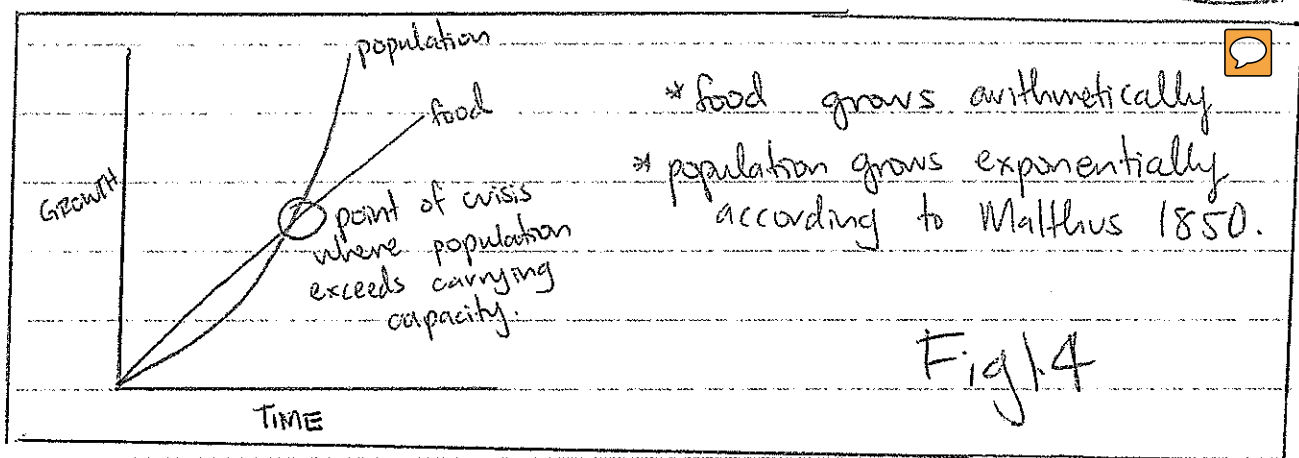 population
food
GROWTH
point of crisis
where population
exceeds carrying
capacity.
TIME
* food grows arithmetically
* population grows exponentially
according to Malthus 1850.
Fig 1.4